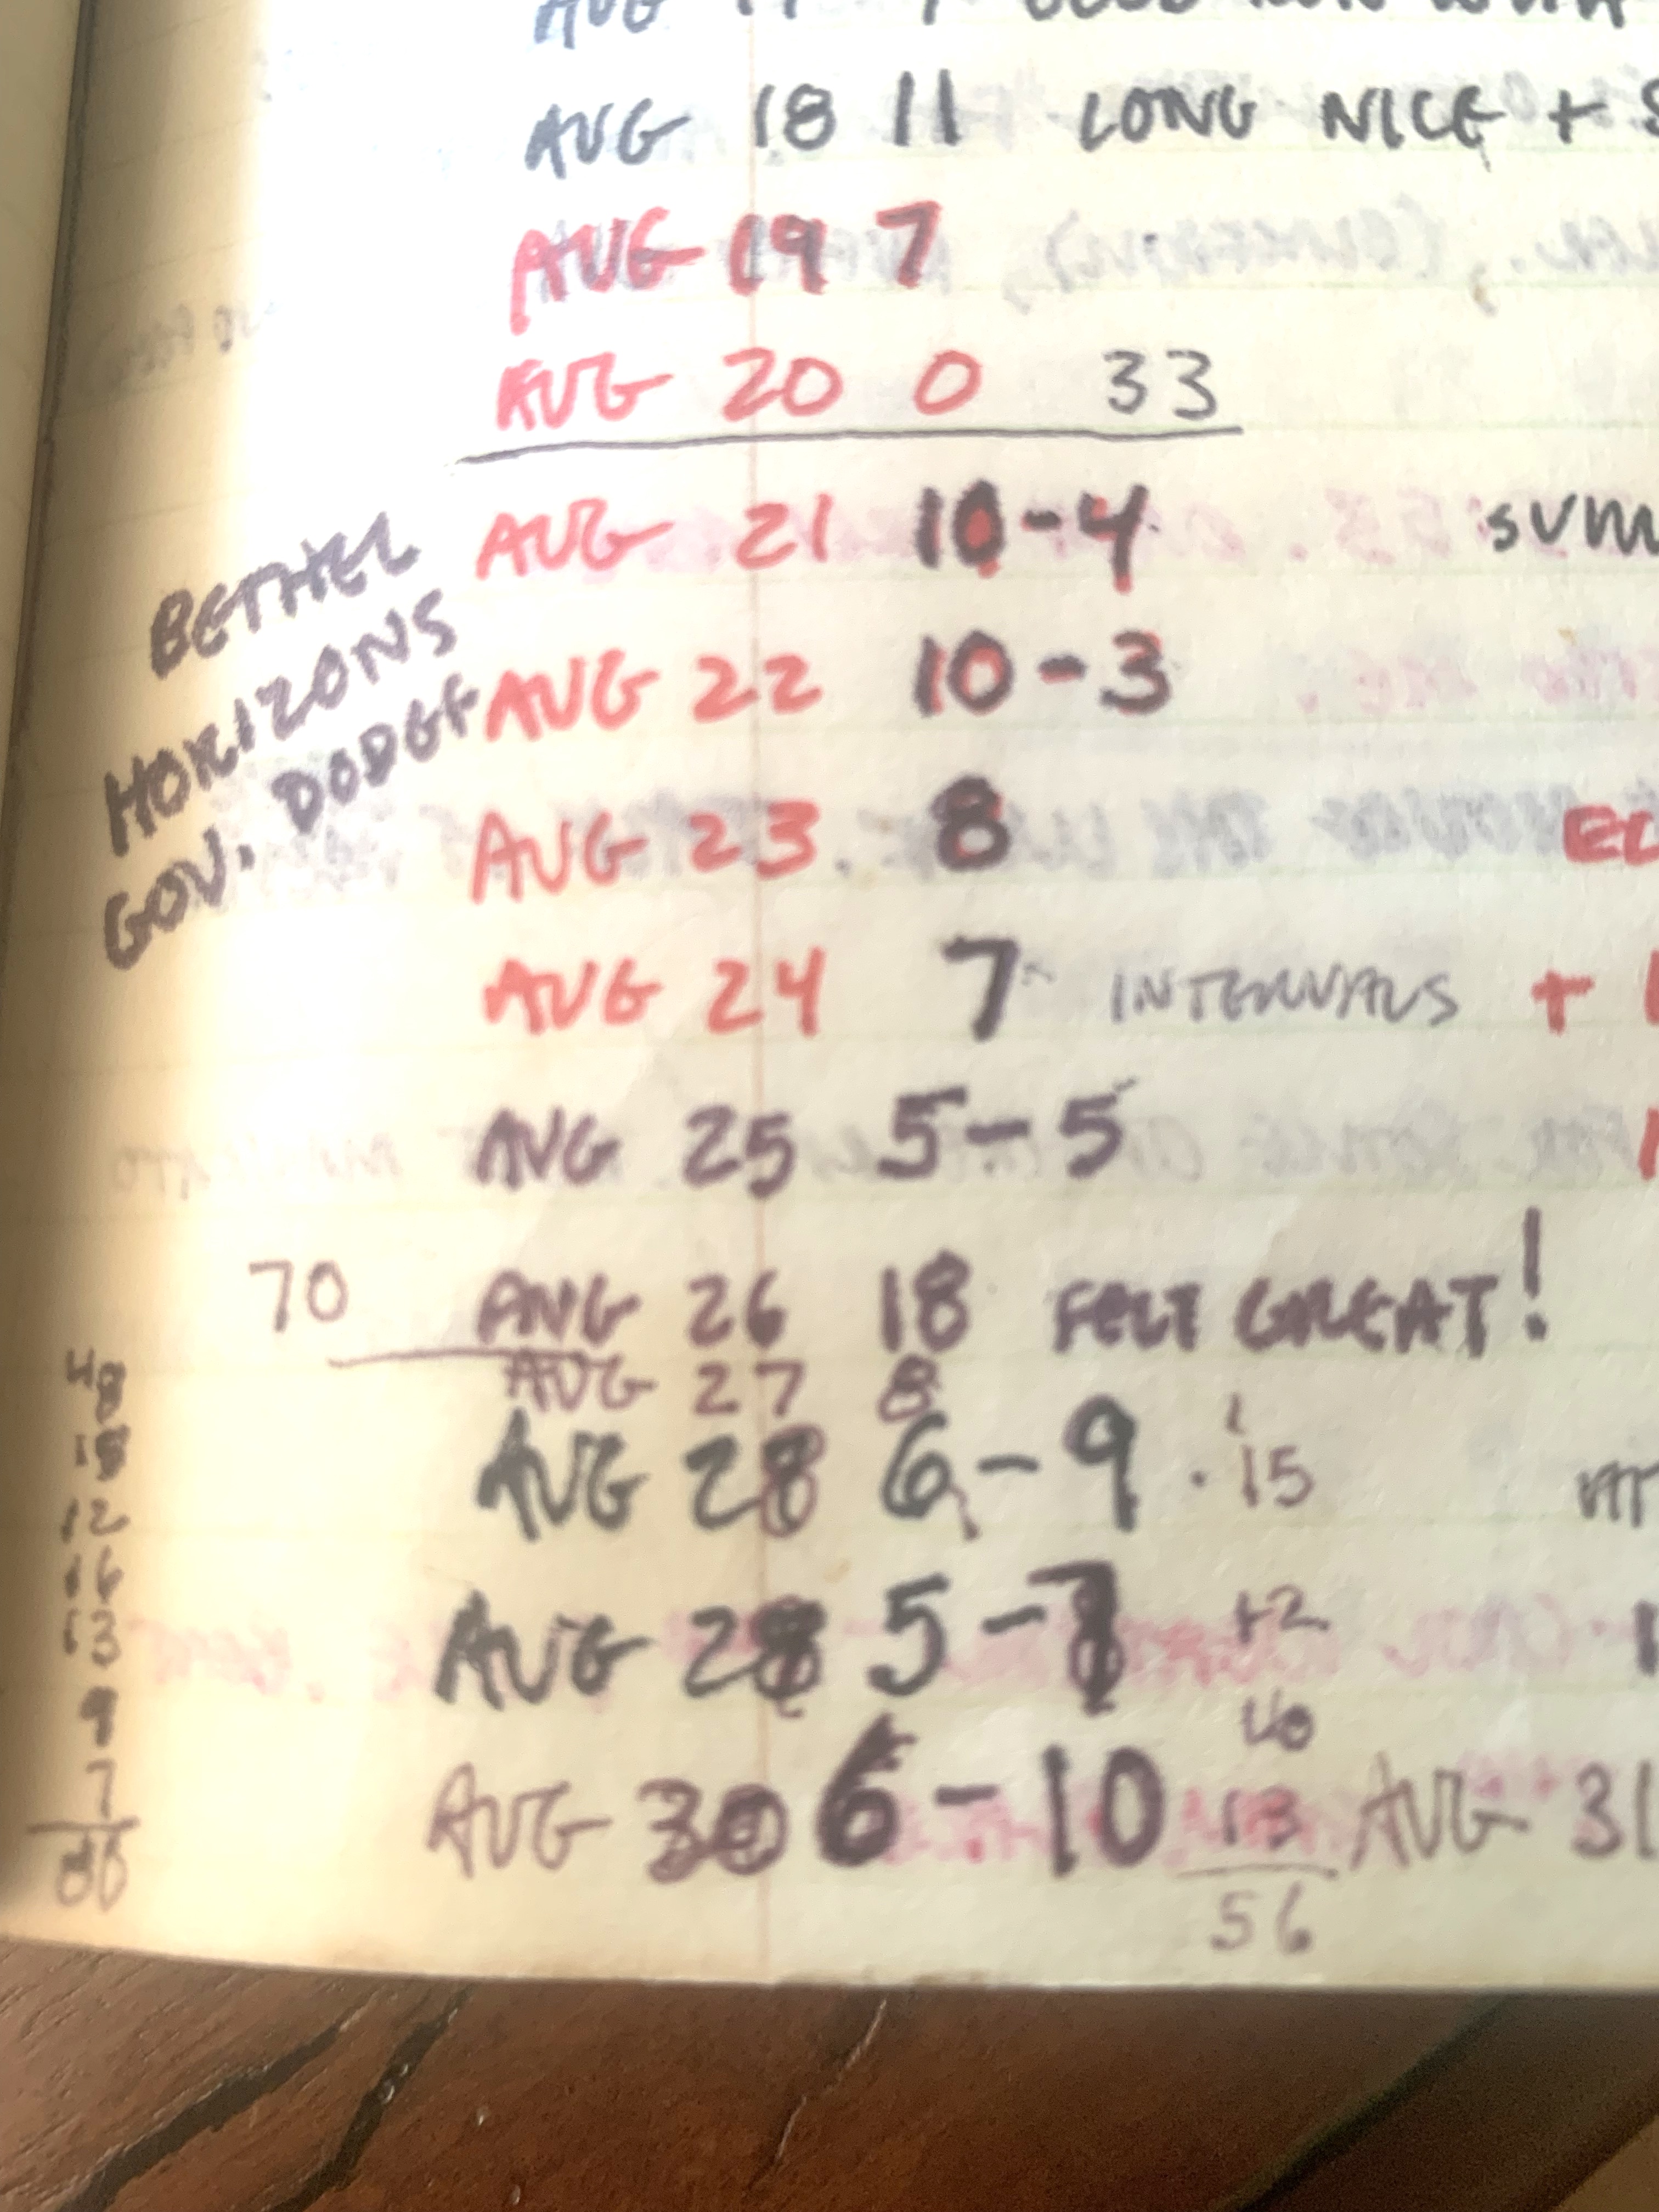 AUG 18 11 LONG NICE + S
AUG 19 7
AUG 20 0 33
AUG 21 10-4 SUM
AUG 22 10-3
AUG 23 8
AUG 24 7 INTERVALS +
AUG 25 5-5
70 AUG 26 18 FELT GREAT!
AUG 27 8
AUG 28 6-9 . 15
AUG 28 5-7 12
AUG 30 6-10 13 AUG 31
56
BETHEL
HORIZONS
GOV. DODGE
48
18
12
16
13
9
7